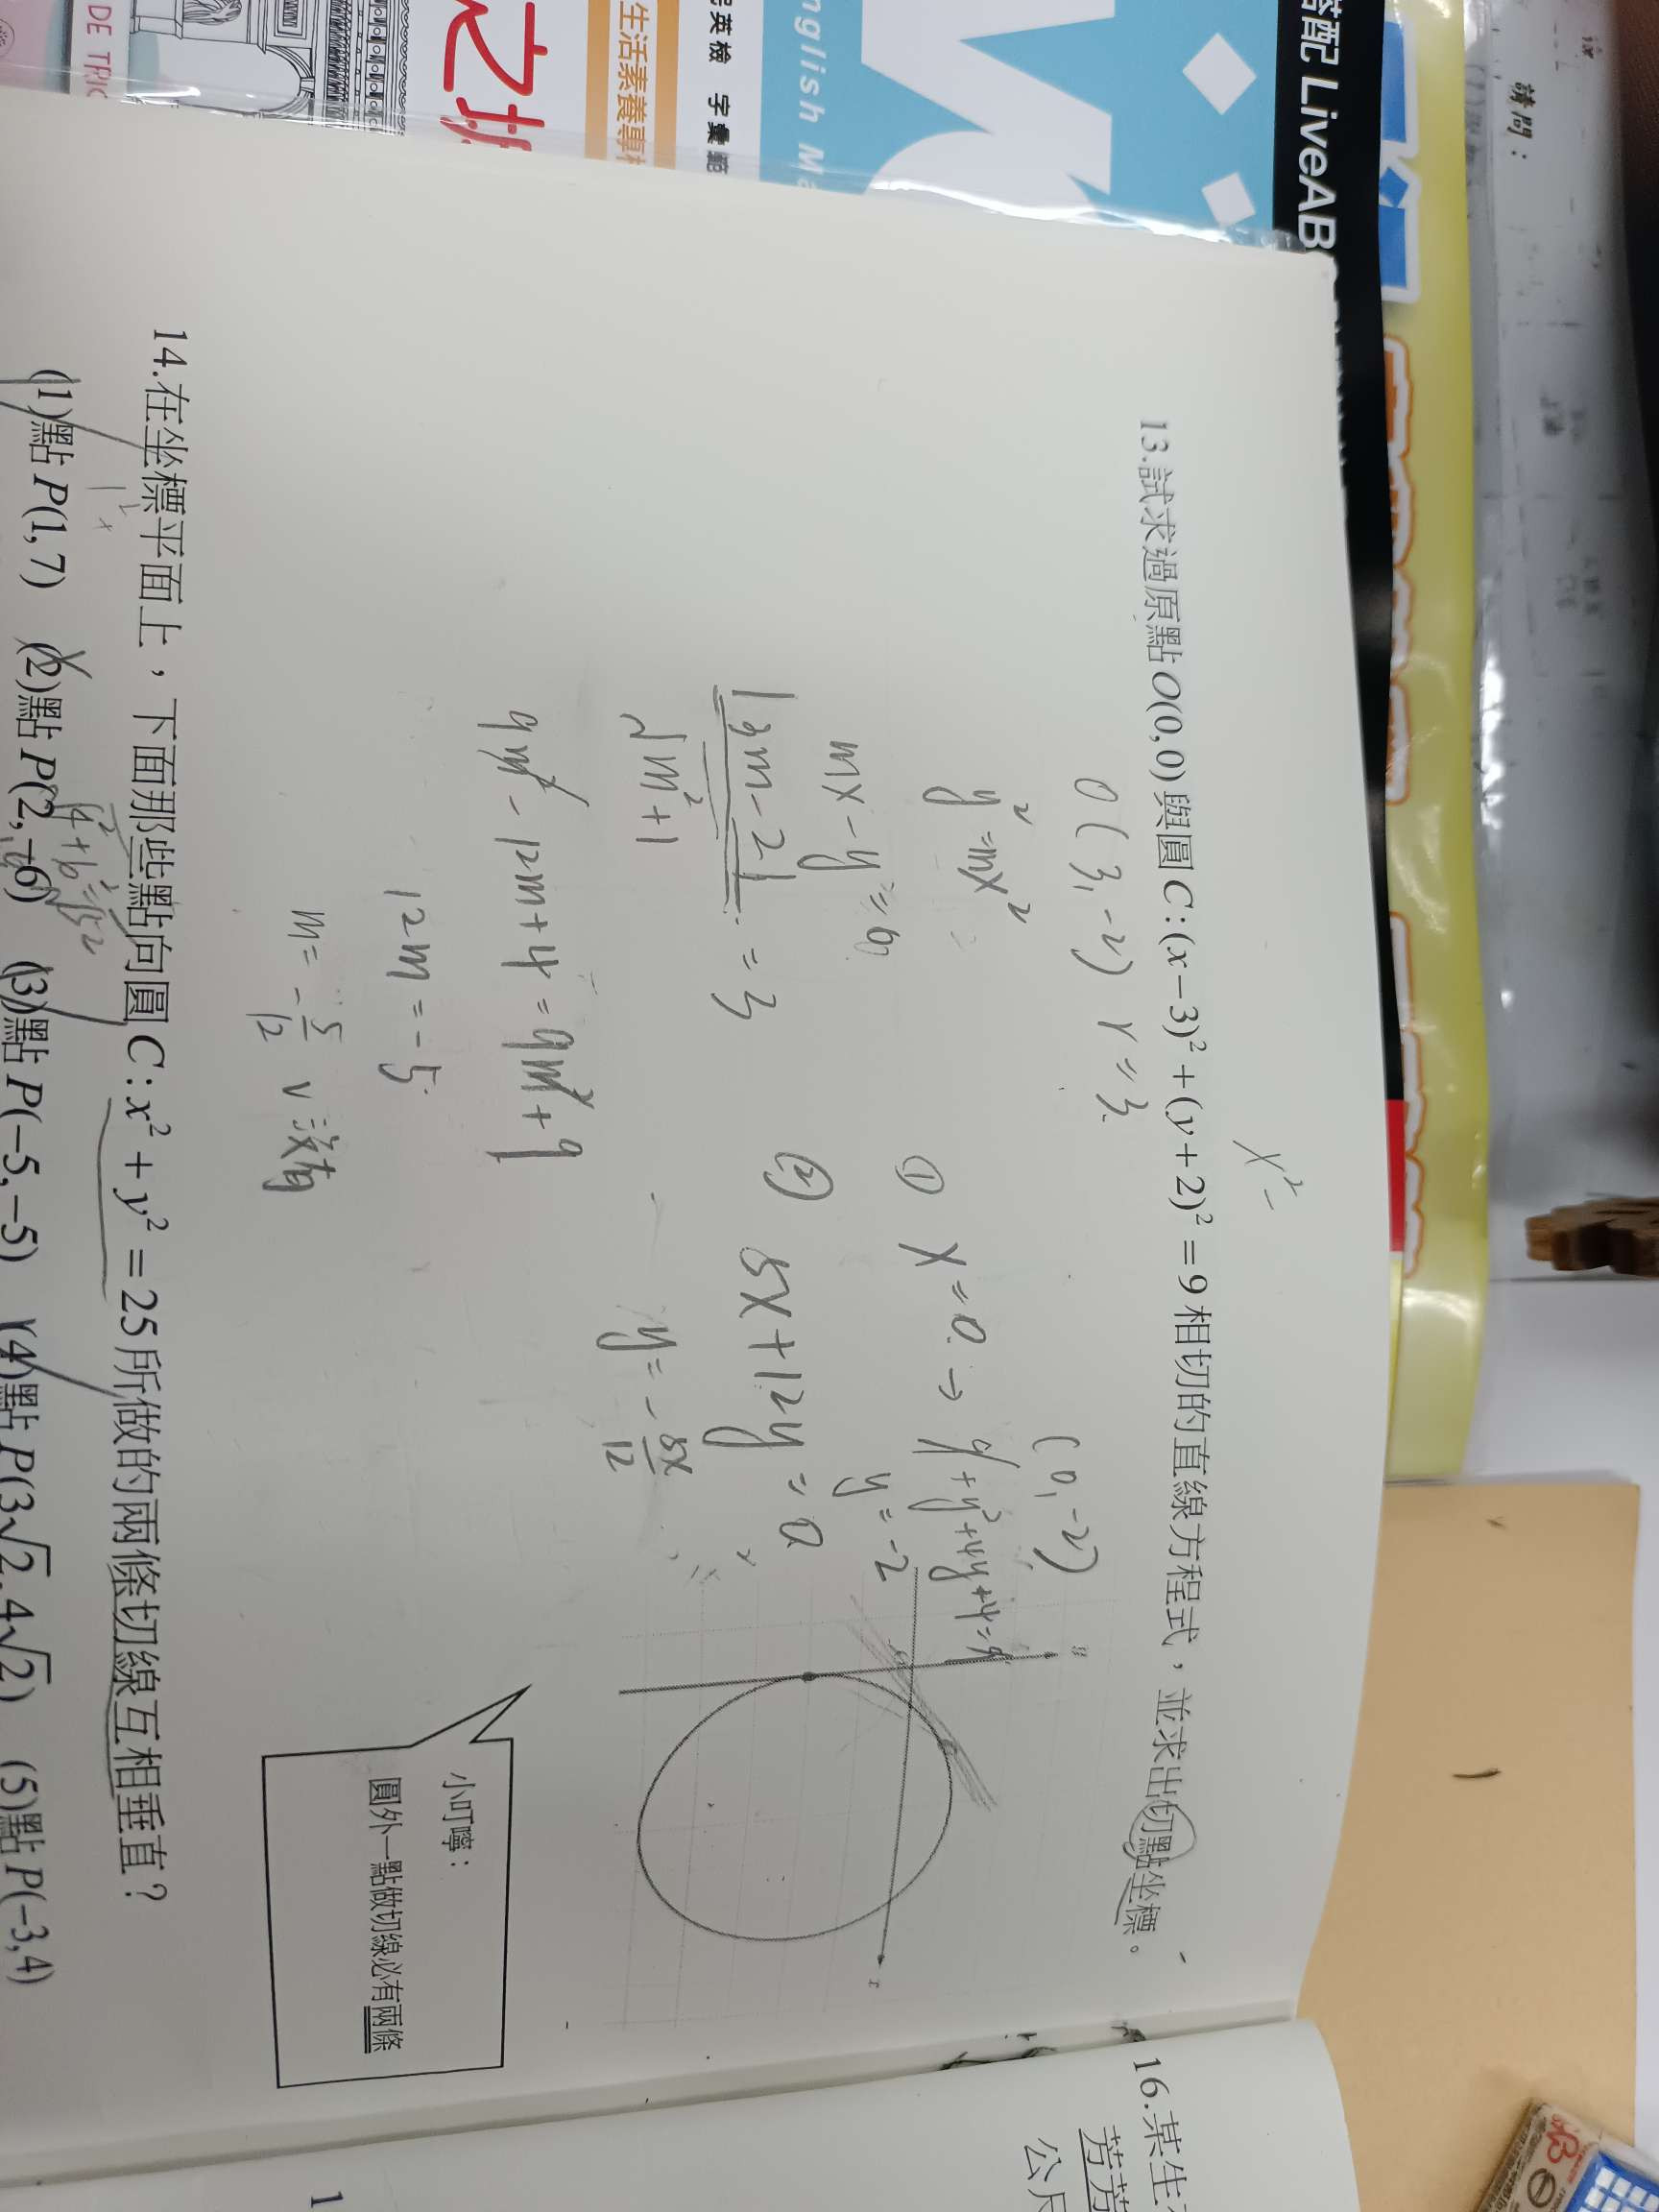 請問：
搭配 LiveAB
nglish Ma
字彙範
生活素養專
DE TRIC
x²-
13.試求過原點O(0,0)與圓C:(x−3)²+(y+2)²=9相切的直線方程式，並求出切點坐標。
O(3,-2) r=3
(0,-2)
y=mx
① x=0 → 9+y²+4y+4=9
y=-2
mx-y=0
② 5x+12y=0
|3m-2|
√m²+1
=3
y=-5x/12
9m²-12m+4=9m²+9
12m=-5
m=-5/12
y
x
小叮嚀：
圓外一點做切線必有兩條
14.在坐標平面上，下面那些點向圓C:x²+y²=25所做的兩條切線互相垂直？
(1)點P(1,7) (2)點P(2,−6) (3)點P(−5,−5) (4)點P(3√2,4√2) (5)點P(−3,4)
16.某生
芳芳
公尺
1